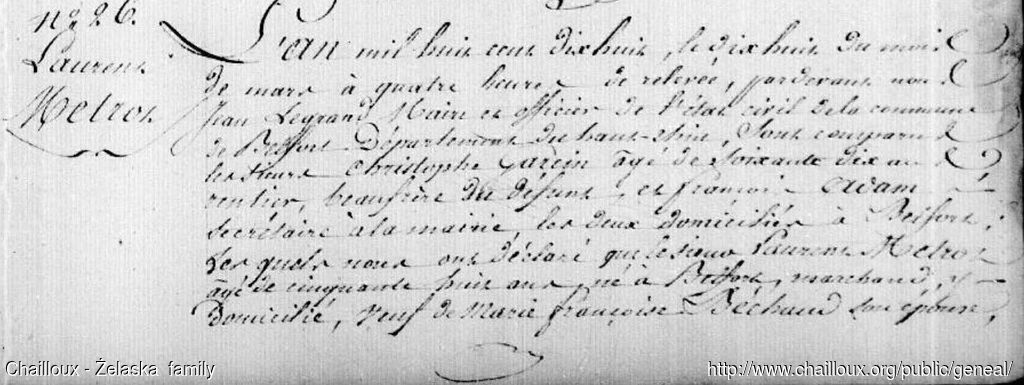 N° 26.
Laurent
Metrot
L'an mil huit cent dix huit, le dix huit du mois
de mars à quatre heures de relevée, pardevant nous
Jean Legrand Maire et officier de l'état civil de la commune
de Belfort Département du haut-rhin, sont comparus
les sieurs Christophe Garcin âgé de soixante dix ans
rentier, beaufrère du défunt, et françois Adam
secrétaire à la mairie, les deux domiciliés à Belfort,
Lesquels nous ont déclaré que le sieur Laurent Metrot
âgé de cinquante huit ans, né à Belfort, marchand, y
domicilié, Veuf de Marie françoise Bechaud son épouse,
Chailloux - Żelaska family
http://www.chailloux.org/public/geneal/